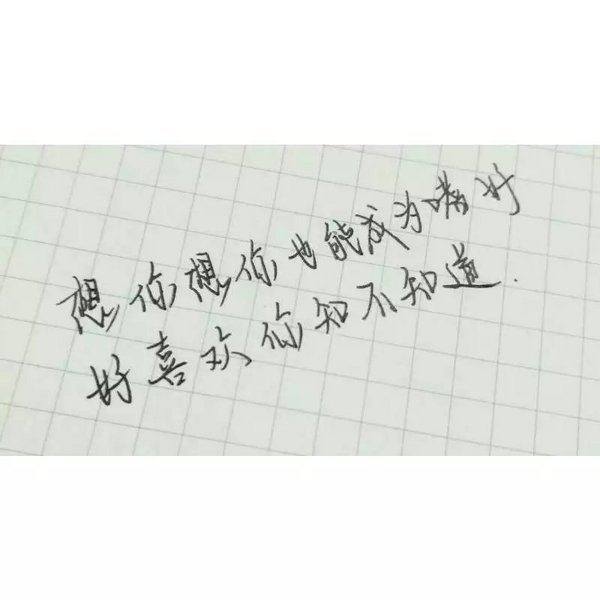 想你想你也能成为嗜好
好喜欢你知不知道.